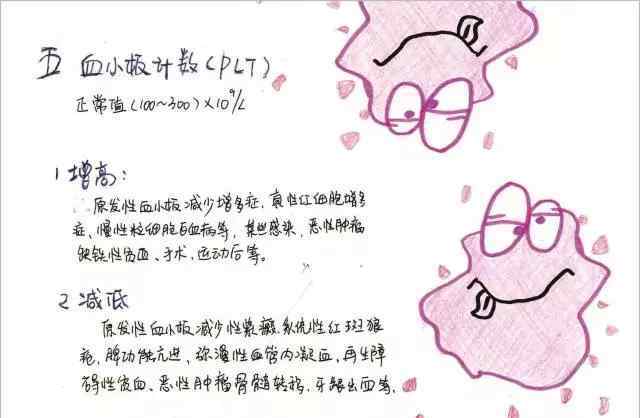 五 血小板计数(PLT)
正常值(100~300)×10⁹/L
1 增高:
原发性血小板减少增多症,真性红细胞增多
症、慢性粒细胞白血病等,某些感染,恶性肿瘤
缺铁性贫血、手术、运动后等。
2 减低
原发性血小板减少性紫癜,系统性红斑狼
疮,脾功能亢进,弥漫性血管内凝血,再生障
碍性贫血、恶性肿瘤骨髓转移,牙龈出血等,